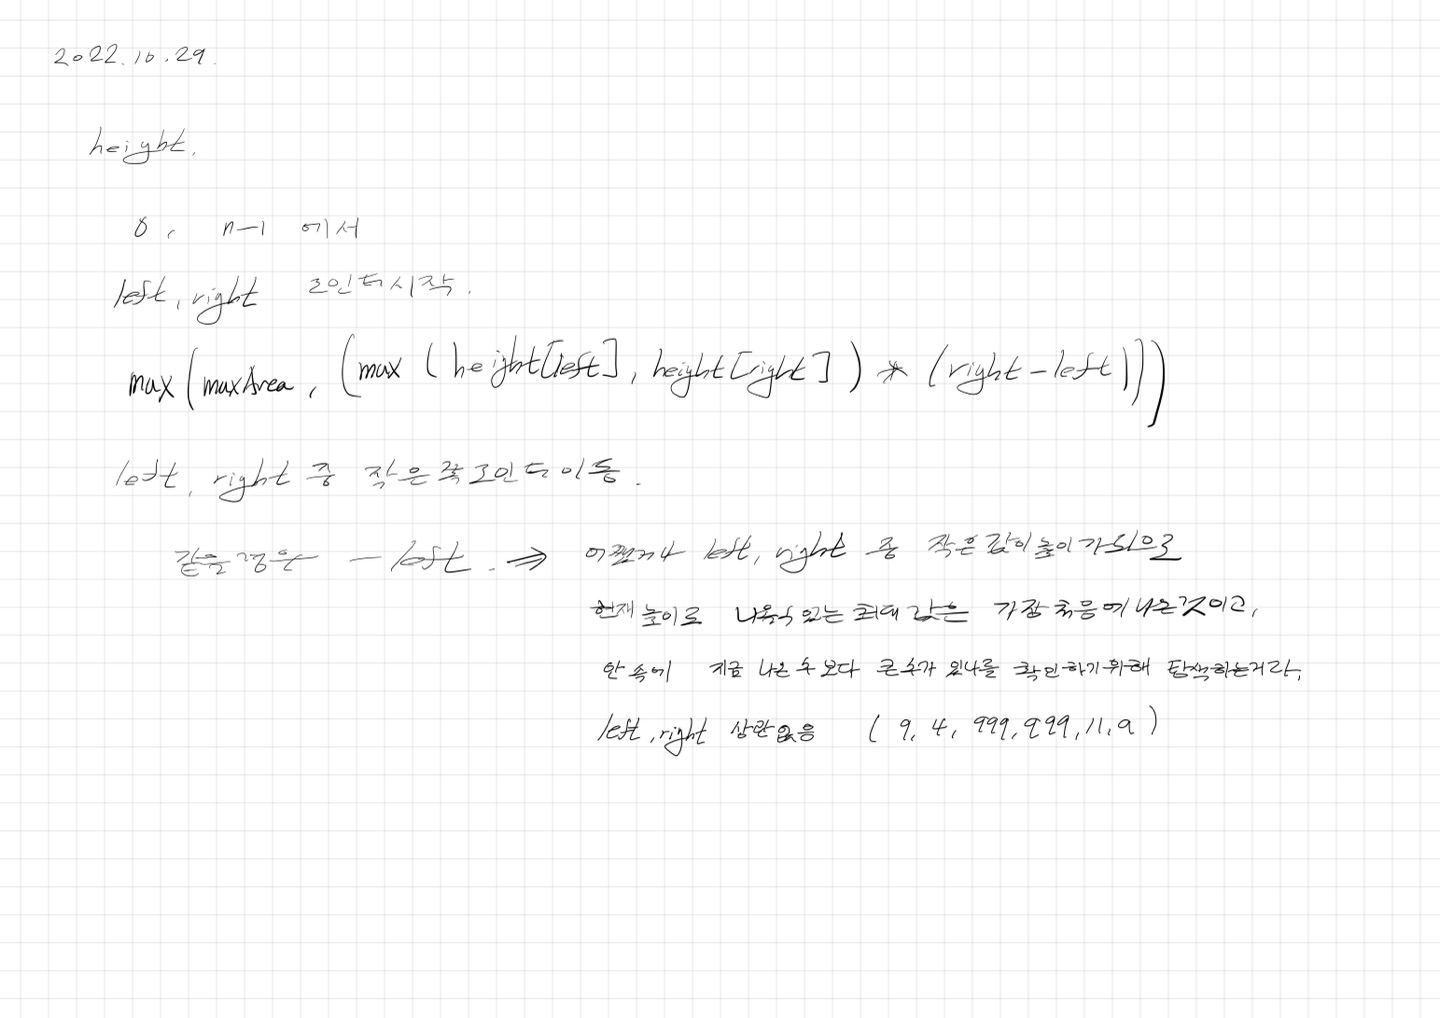 2022.10.29.
height.
0, n-1 에서
left, right 포인터 시작.
max(maxArea, (max (height[left], height[right]) * (right-left))))
left, right 중 작은 쪽 포인터 이동.
같을 경우는 - left. ⇒ 어쨌거나 left, right 중 작은 값이 높이가 되므로
현재 높이로 나올 수 있는 최대 값은 가장 처음에 나온 것이고,
안 속에 지금 나온 수 보다 큰 수가 있나를 확인하기 위해 탐색하는거라,
left, right 상관 없음 (9, 4, 999, 999, 11, 9)